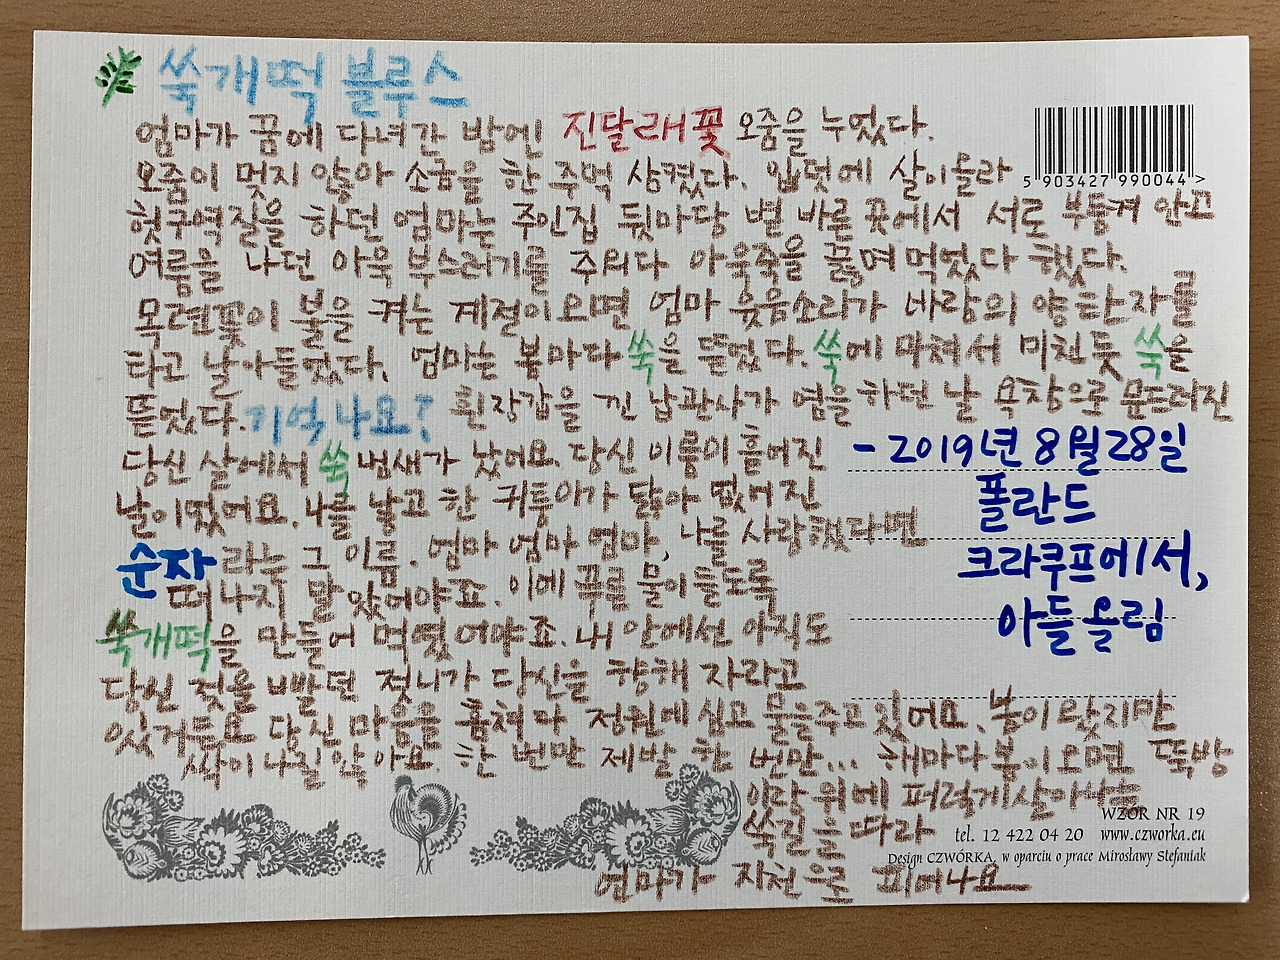 쑥개떡 블루스
엄마가 꿈에 다녀간 밤엔 진달래꽃 오줌을 누었다.
오줌이 멎지 않아 소금을 한 주먹 삼켰다. 입덧에 살이올라
헛구역질을 하던 엄마는 주인집 뒷마당 볕 바른 곳에서 서로 부둥켜 안고
여름을 나던 아욱 부스러기를 주워다 아욱죽을 끓여 먹었다 했다.
목련꽃이 불을 켜는 계절이오면 엄마 웃음소리가 바람의 양탄자를
타고 날아들었다. 엄마는 봄마다 쑥을 뜯었다. 쑥에 미쳐서 미친듯 쑥을
뜯었다. 기억나요? 흰장갑을 낀 남관사가 염을 하던 날 욕창으로 문드러진
당신 살에서 쑥 냄새가 났어요. 당신 이름이 흩어진
날이었어요. 나를 낳고 한 귀퉁이가 닳아 떨어진
순자 라는 그 이름. 엄마 엄마 엄마, 나를 사랑했다면
떠나지 말았어야죠. 이에 푸른 물이 들도록
쑥개떡을 만들어 먹였어야죠. 내 안에선 아직도
당신 젖을 빨던 젖니가 당신을 향해 자라고
있거든요 당신 마음을 훔쳐다 정원에 심고 물을주고 있어요. 봄이 왔지만
싹이 나질 않아요. 한 번만 제발 한 번만... 해마다 봄이오면 뚝방
이랑 위에 퍼렇게 살아나는
쑥길을 따라
엄마가 지천으로 피어나요
5 903427 990044 >
- 2019년 8월 28일
폴란드
크라쿠프에서,
아들 올림
WZÓR NR 19
tel. 12 422 04 20 www.czworka.eu
Design CZWÓRKA, w oparciu o prace Mirosławy Stefaniak